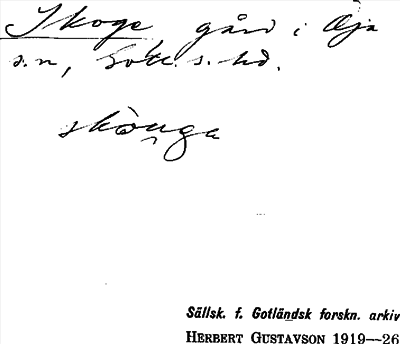 Skoge, gård i Öja
s:n, Gotl. s. hd.
skòu̯ga
Sällsk. f. Gotländsk forskn. arkiv
HERBERT GUSTAVSON 1919—26